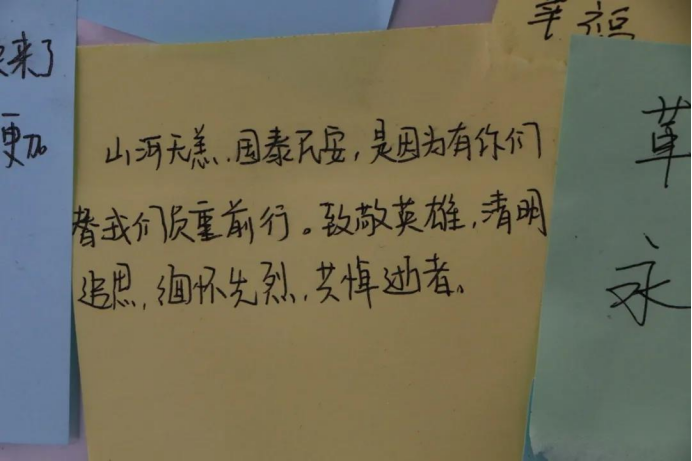 来了
更加
幸福
山河无恙,国泰民安,是因为有你们
替我们负重前行。致敬英雄,清明
追思,缅怀先烈,共悼逝者。
草
永